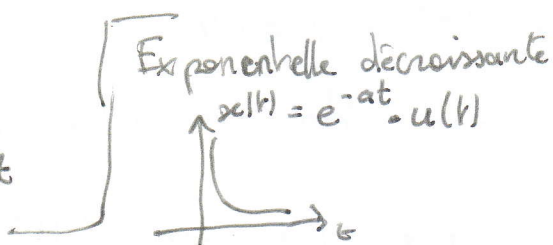 Exponentielle décroissante
x(t) = e^-at . u(t)
t
t